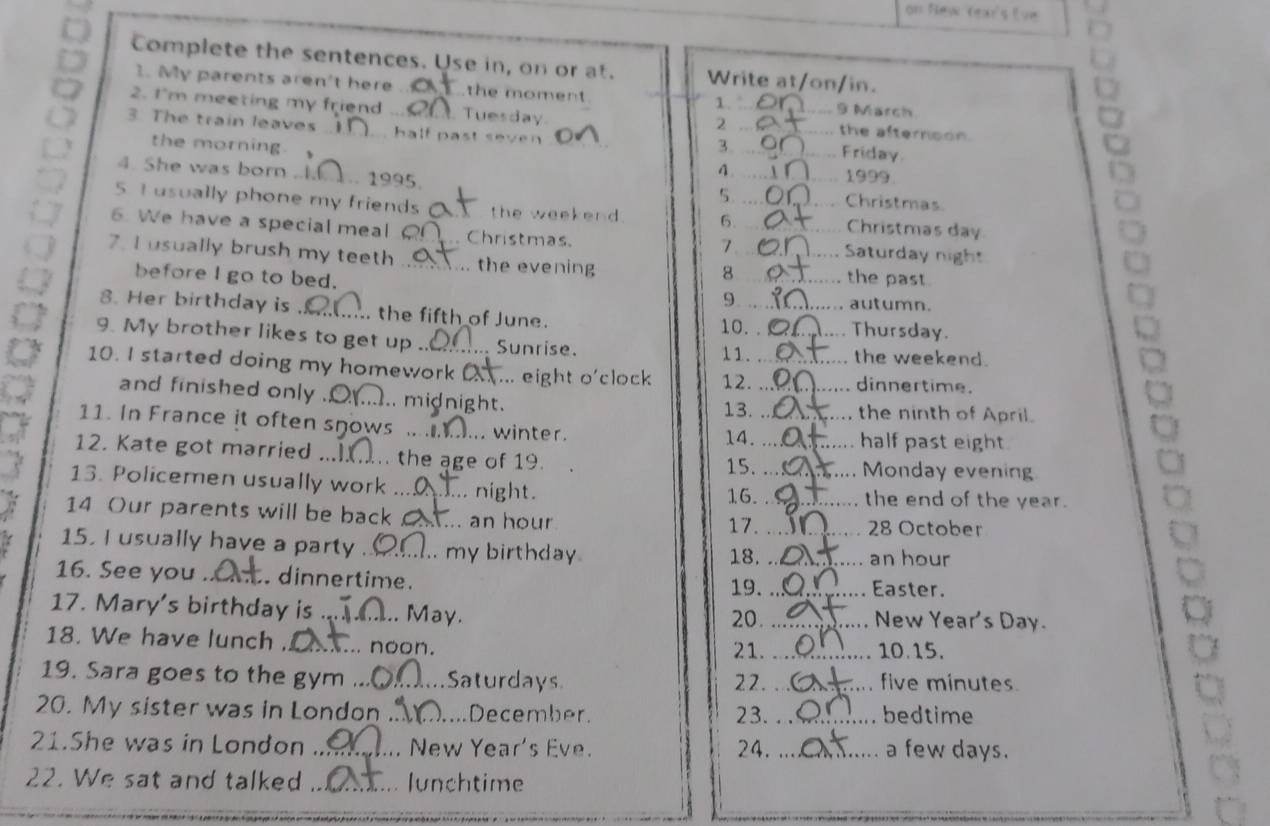 on New Year's Eve
Complete the sentences. Use in, on or at.
1. My parents aren't here ..at..the moment
2. I'm meeting my friend ...on.. Tuesday.
3. The train leaves ..in... half past seven on
the morning.
4. She was born ..in... 1995.
5. I usually phone my friends at the weekend
6. We have a special meal on... Christmas.
7. I usually brush my teeth ...at... the evening
before I go to bed.
8. Her birthday is ...on..... the fifth of June.
9. My brother likes to get up ...on..... Sunrise.
10. I started doing my homework at... eight o'clock
and finished only ..on... midnight.
11. In France it often snows ...in... winter.
12. Kate got married ...in.... the age of 19.
13. Policemen usually work ...at... night.
14 Our parents will be back at... an hour
15. I usually have a party ..on... my birthday.
16. See you ..at... dinnertime.
17. Mary's birthday is ...in... May.
18. We have lunch ..at... noon.
19. Sara goes to the gym ...on....Saturdays.
20. My sister was in London ...in....December.
21.She was in London ...on.... New Year's Eve.
22. We sat and talked ...at.... lunchtime
Write at/on/in.
1. ..on.... 9 March
2 ...at.... the afternoon.
3. ...on.... Friday.
4. ....in.... 1999.
5. ....on.... Christmas.
6. ...at.... Christmas day.
7 ...on.... Saturday night
8 ...at.... the past.
9. ...in.... autumn.
10. ..on.... Thursday.
11. ...at.... the weekend.
12. ...on.... dinnertime.
13. ...at.... the ninth of April.
14. ...at.... half past eight.
15. ...at.... Monday evening
16. ..at.... the end of the year.
17. ....in.... 28 October
18. ...at.... an hour
19. ...on.... Easter.
20. ...at.... New Year's Day.
21. ....on.... 10.15.
22. ...at.... five minutes.
23. ...on.... bedtime
24. ....at.... a few days.